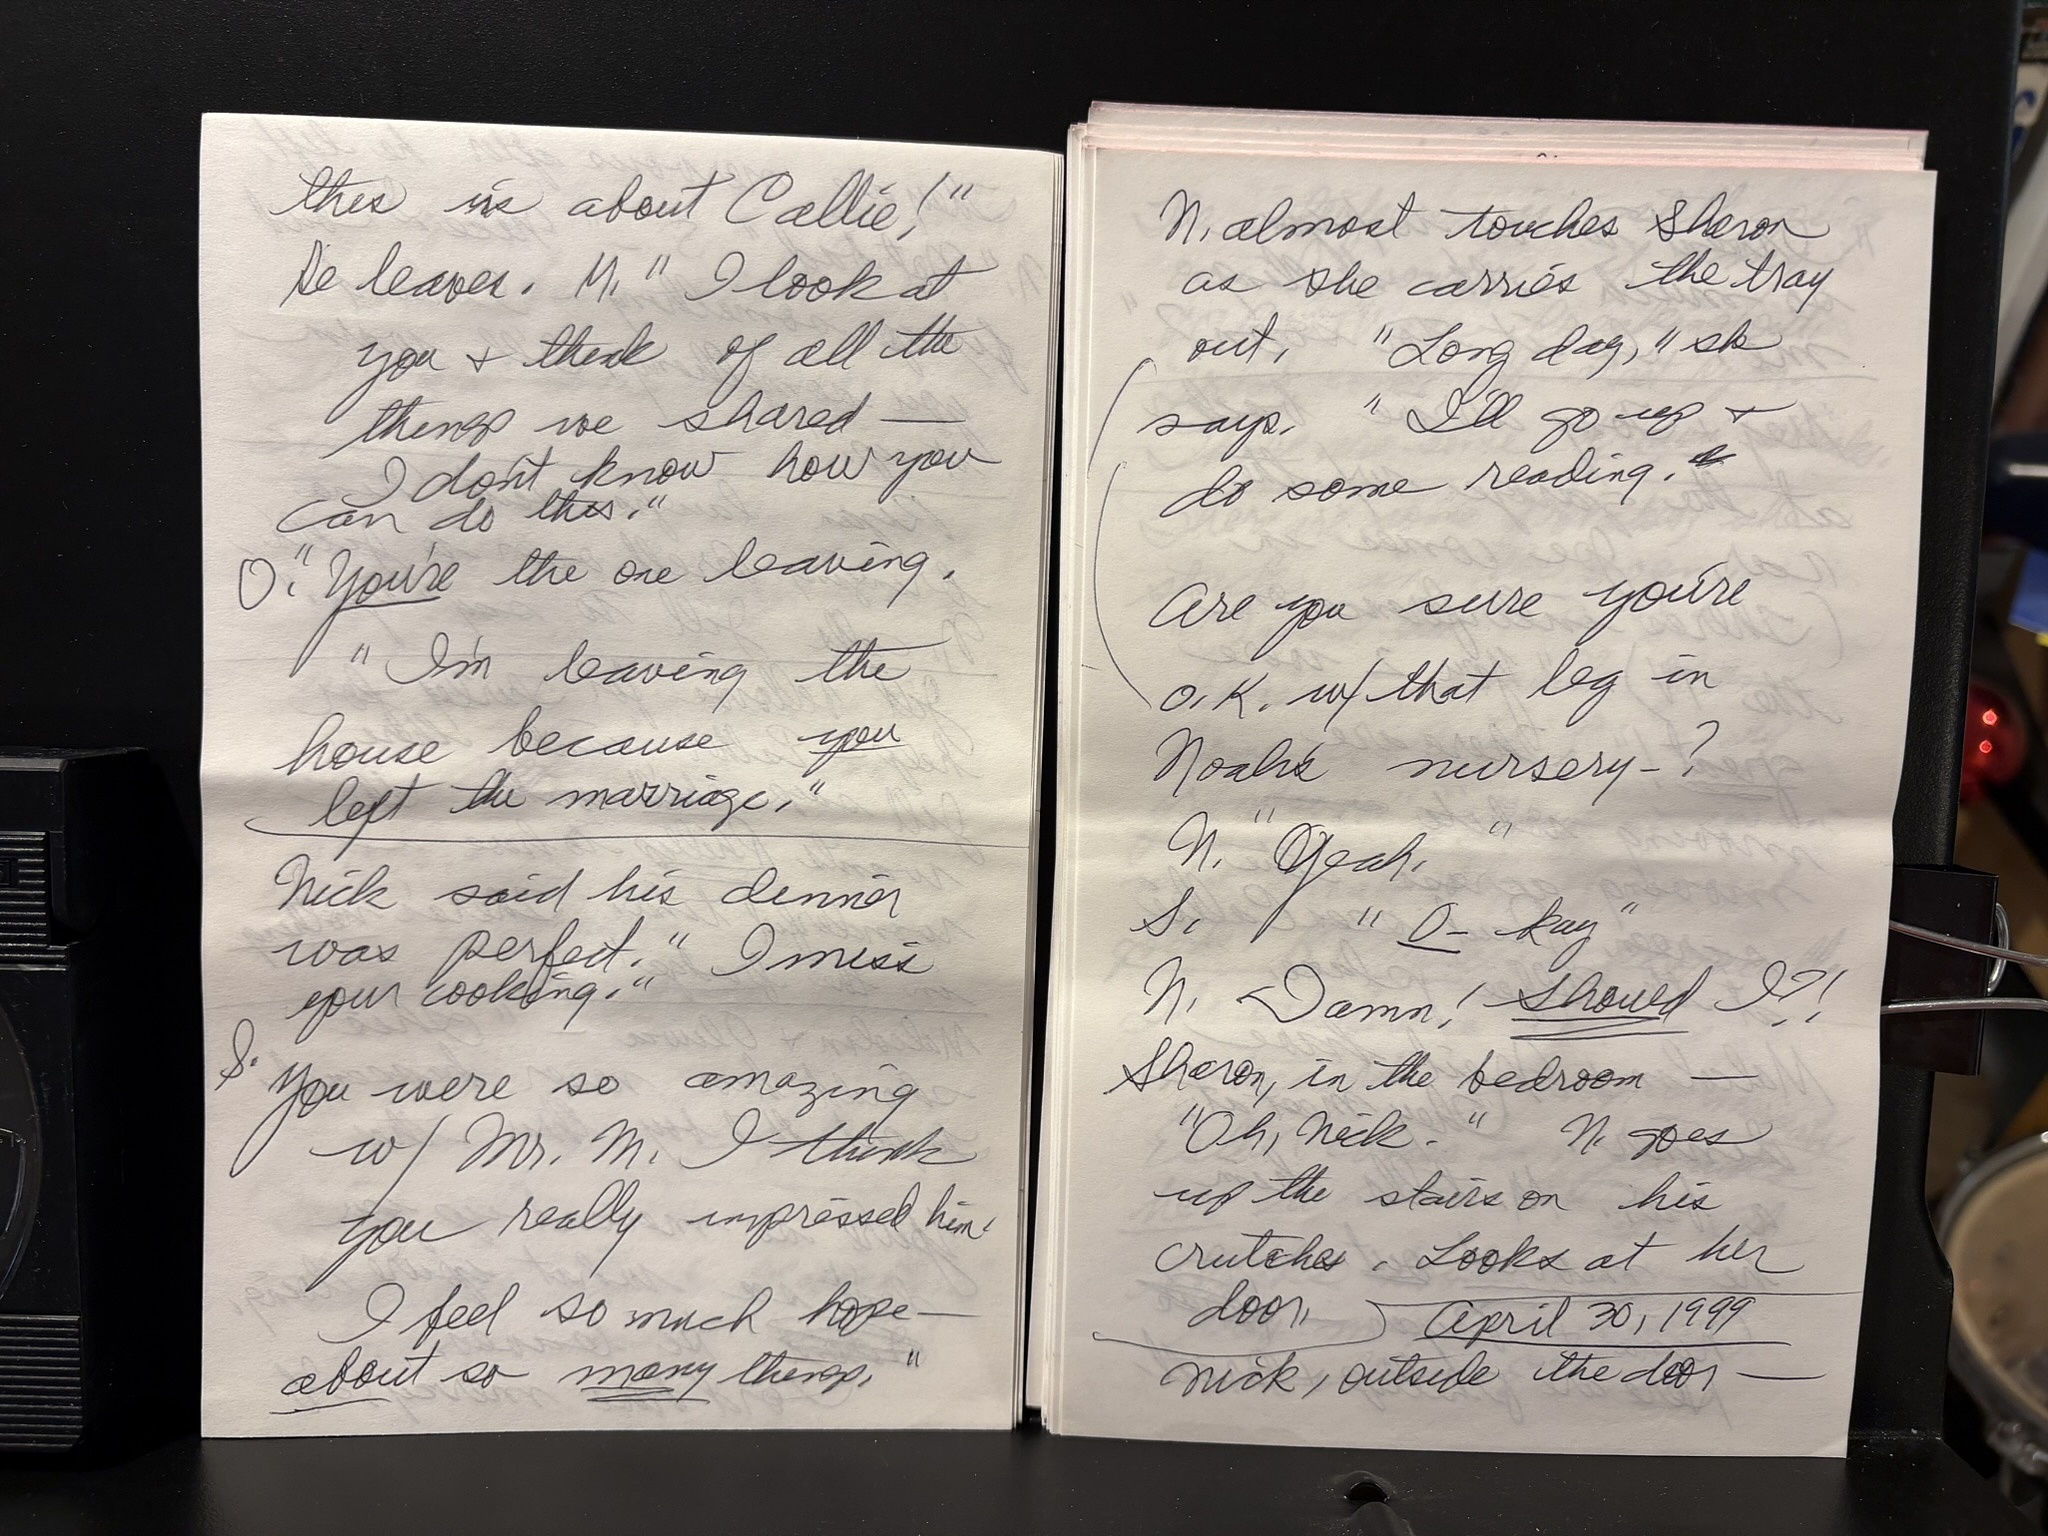 this is about Callie!"
He leaves. M. " I look at
you + think of all the
things we shared —
I don't know how you
can do this."
O. " You're the one leaving.
" I'm leaving the
house because you
left the marriage."
Nick said his dinner
was perfect. " I miss
your cooking."
S. You were so amazing
w/ Mr. M. I think
you really impressed him.
I feel so much hope —
about so many things."
N. almost touches Sharon
as she carries the tray
out. "Long day," sh
says. " I'll go up +
do some reading."
Are you sure you're
O.K. w/ that leg in
Noah's nursery - ?
N. " Yeah. "
S. " O - kay "
N. Damn! Should I?!
Sharon, in the bedroom —
"Oh, Nick. " N. goes
up the stairs on his
crutches. Looks at her
door.
April 30, 1999
Nick, outside the door —